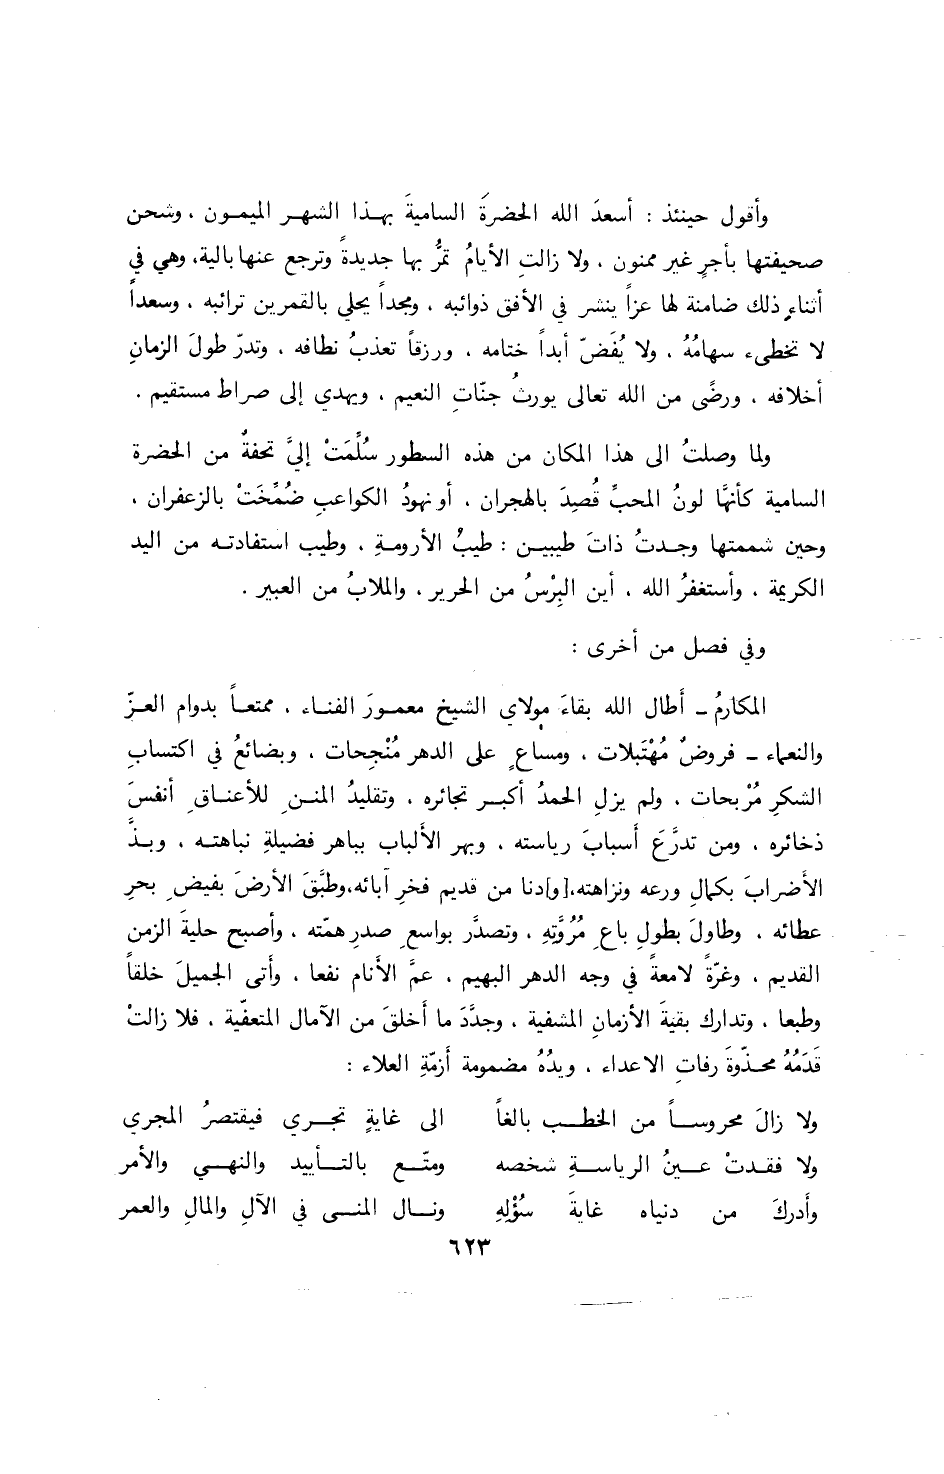 وأقول حينئذ : أسعدَ الله الحضرةَ الساميةَ بهذا الشهر الميمون ، وشحن
صحيفتها بأجرٍ غير ممنون ، ولا زالتِ الأيامُ تمرُّ بها جديدةً وترجع عنها بالية، وهي في
أثناءِ ذلك ضامنة لها عزاً ينشر في الأفق ذوائبه ، ومجداً يحلي بالقمرين ترائبه ، وسعداً
لا تخطىء سهامُهُ ، ولا يُفَضّ أبداً ختامه ، ورزقاً تعذبُ نطافه ، وتدرّ طولَ الزمانِ
أخلافه ، ورضًى من الله تعالى يورثُ جنّاتِ النعيم ، ويهدي إلى صراط مستقيم .
ولما وصلتُ الى هذا المكان من هذه السطور سُلِّمَتْ إليَّ تحفةٌ من الحضرة
السامية كأنهَّا لونُ المحبِّ قُصِدَ بالهجران ، أو نهودُ الكواعبِ ضُمِّخَتْ بالزعفران ،
وحين شممتها وجدتُ ذاتَ طيبين : طيبُ الأرومةِ ، وطيب استفادته من اليد
الكريمة ، وأستغفرُ الله ، أين البِرْسُ من الحرير ، والملابُ من العبير .
وفي فصل من أخرى :
المكارمُ ـ أطال الله بقاءَ مولاي الشيخ معمورَ الفناء ، ممتعاً بدوام العزّ
والنعماء ـ فروضٌ مُهْتَبلات ، ومساعٍ على الدهر مُنْجِحات ، وبضائعُ في اكتسابِ
الشكرِ مُرْبحات ، ولم يزلِ الحمدُ أكبر تجائره ، وتقليدُ المننِ للأعناقِ أنفسَ
ذخائره ، ومن تدرَّعَ أسبابَ رياسته ، وبهر الألباب بباهر فضيلةِ نباهته ، وبذَّ
الأضرابَ بكمالِ ورعه ونزاهته،[و]دنا من قديم فخرِ آبائه،وطبَّقَ الأرضَ بفيضِ بحرِ
عطائه ، وطاولَ بطولِ باعِ مُرُوَّتِهِ ، وتصدَّر بواسعِ صدرِ همّته ، وأصبح حليةَ الزمن
القديم ، وغرّةً لامعةً في وجه الدهر البهيم ، عمَّ الأنام نفعا ، وأتى الجميلَ خلقاً
وطبعا ، وتدارك بقيةَ الأزمانِ المشفية ، وجدَّدَ ما أخلقَ من الآمال المتعفّية ، فلا زالتْ
قَدَمُهُ محذّوةَ رفاتِ الاعداء ، ويدُهُ مضمومة أزمّةِ العلاء :
ولا زالَ محروساً من الخطب بالغاً الى غايةٍ تجري فيقتصرُ المجري
ولا فقدتْ عينُ الرياسةِ شخصه ومتّع بالتأييد والنهي والأمر
وأدركَ من دنياه غايةَ سُؤْلِهِ ونال المنى في الآلِ والمالِ والعمر
٦٢٣